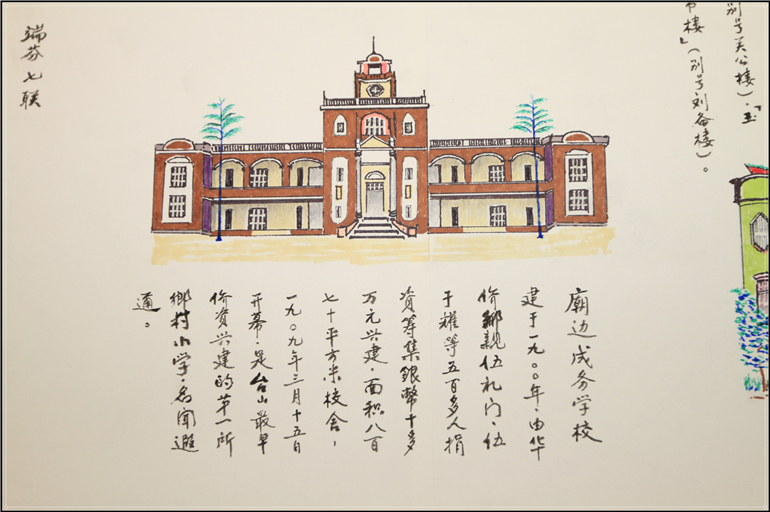 别号关公楼)、「玉
楼」(别号刘备楼)。
廟边成务学校
建于一九〇〇年,由华
侨鄉親伍礼门、伍
于耀等五百多人捐
資筹集銀幣十多
万元兴建,面积八百
七十平方米校舍,
一九〇九年三月十五日
开幕,是台山最早
侨資兴建的苐一所
鄉村小学,名闻遐
邇。
端芬七联